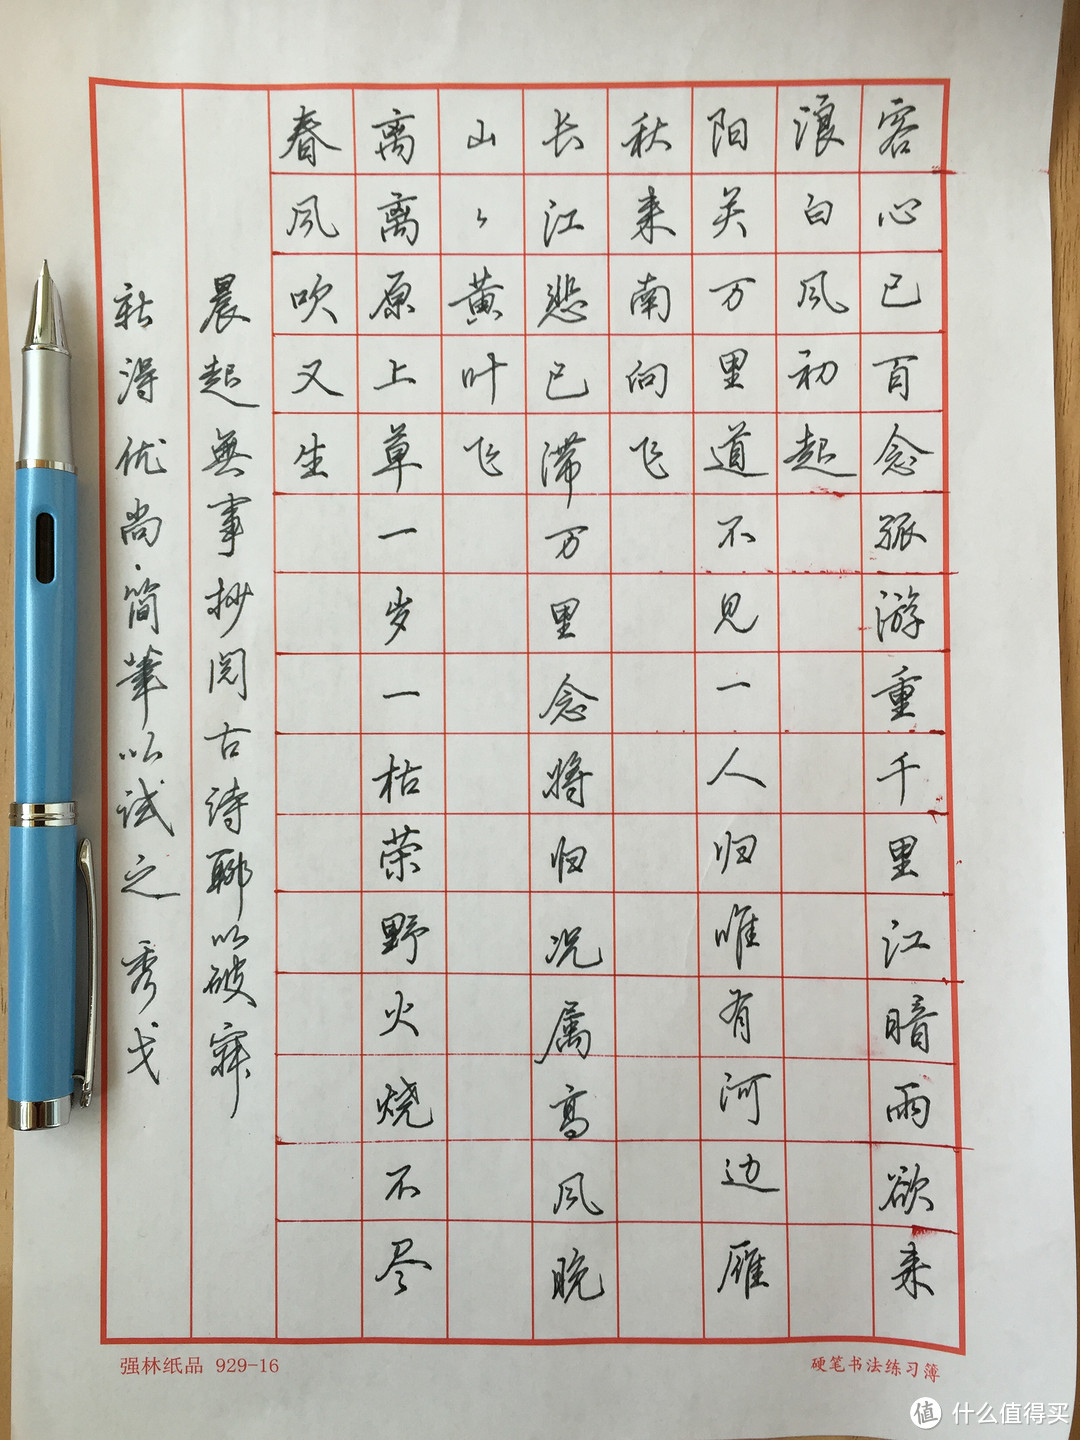 客心已百念孤游重千里江暗雨欲来
浪白风初起
阳关万里道不见一人归唯有河边雁
秋来南向飞
长江悲已滞万里念将归况属高风晚
山々黄叶飞
离离原上草一岁一枯荣野火烧不尽
春风吹又生
晨起無事抄阅古诗聊以破寂
新得优尚简筆以试之 秀戈
强林纸品 929-16
硬笔书法练习簿
值 什么值得买